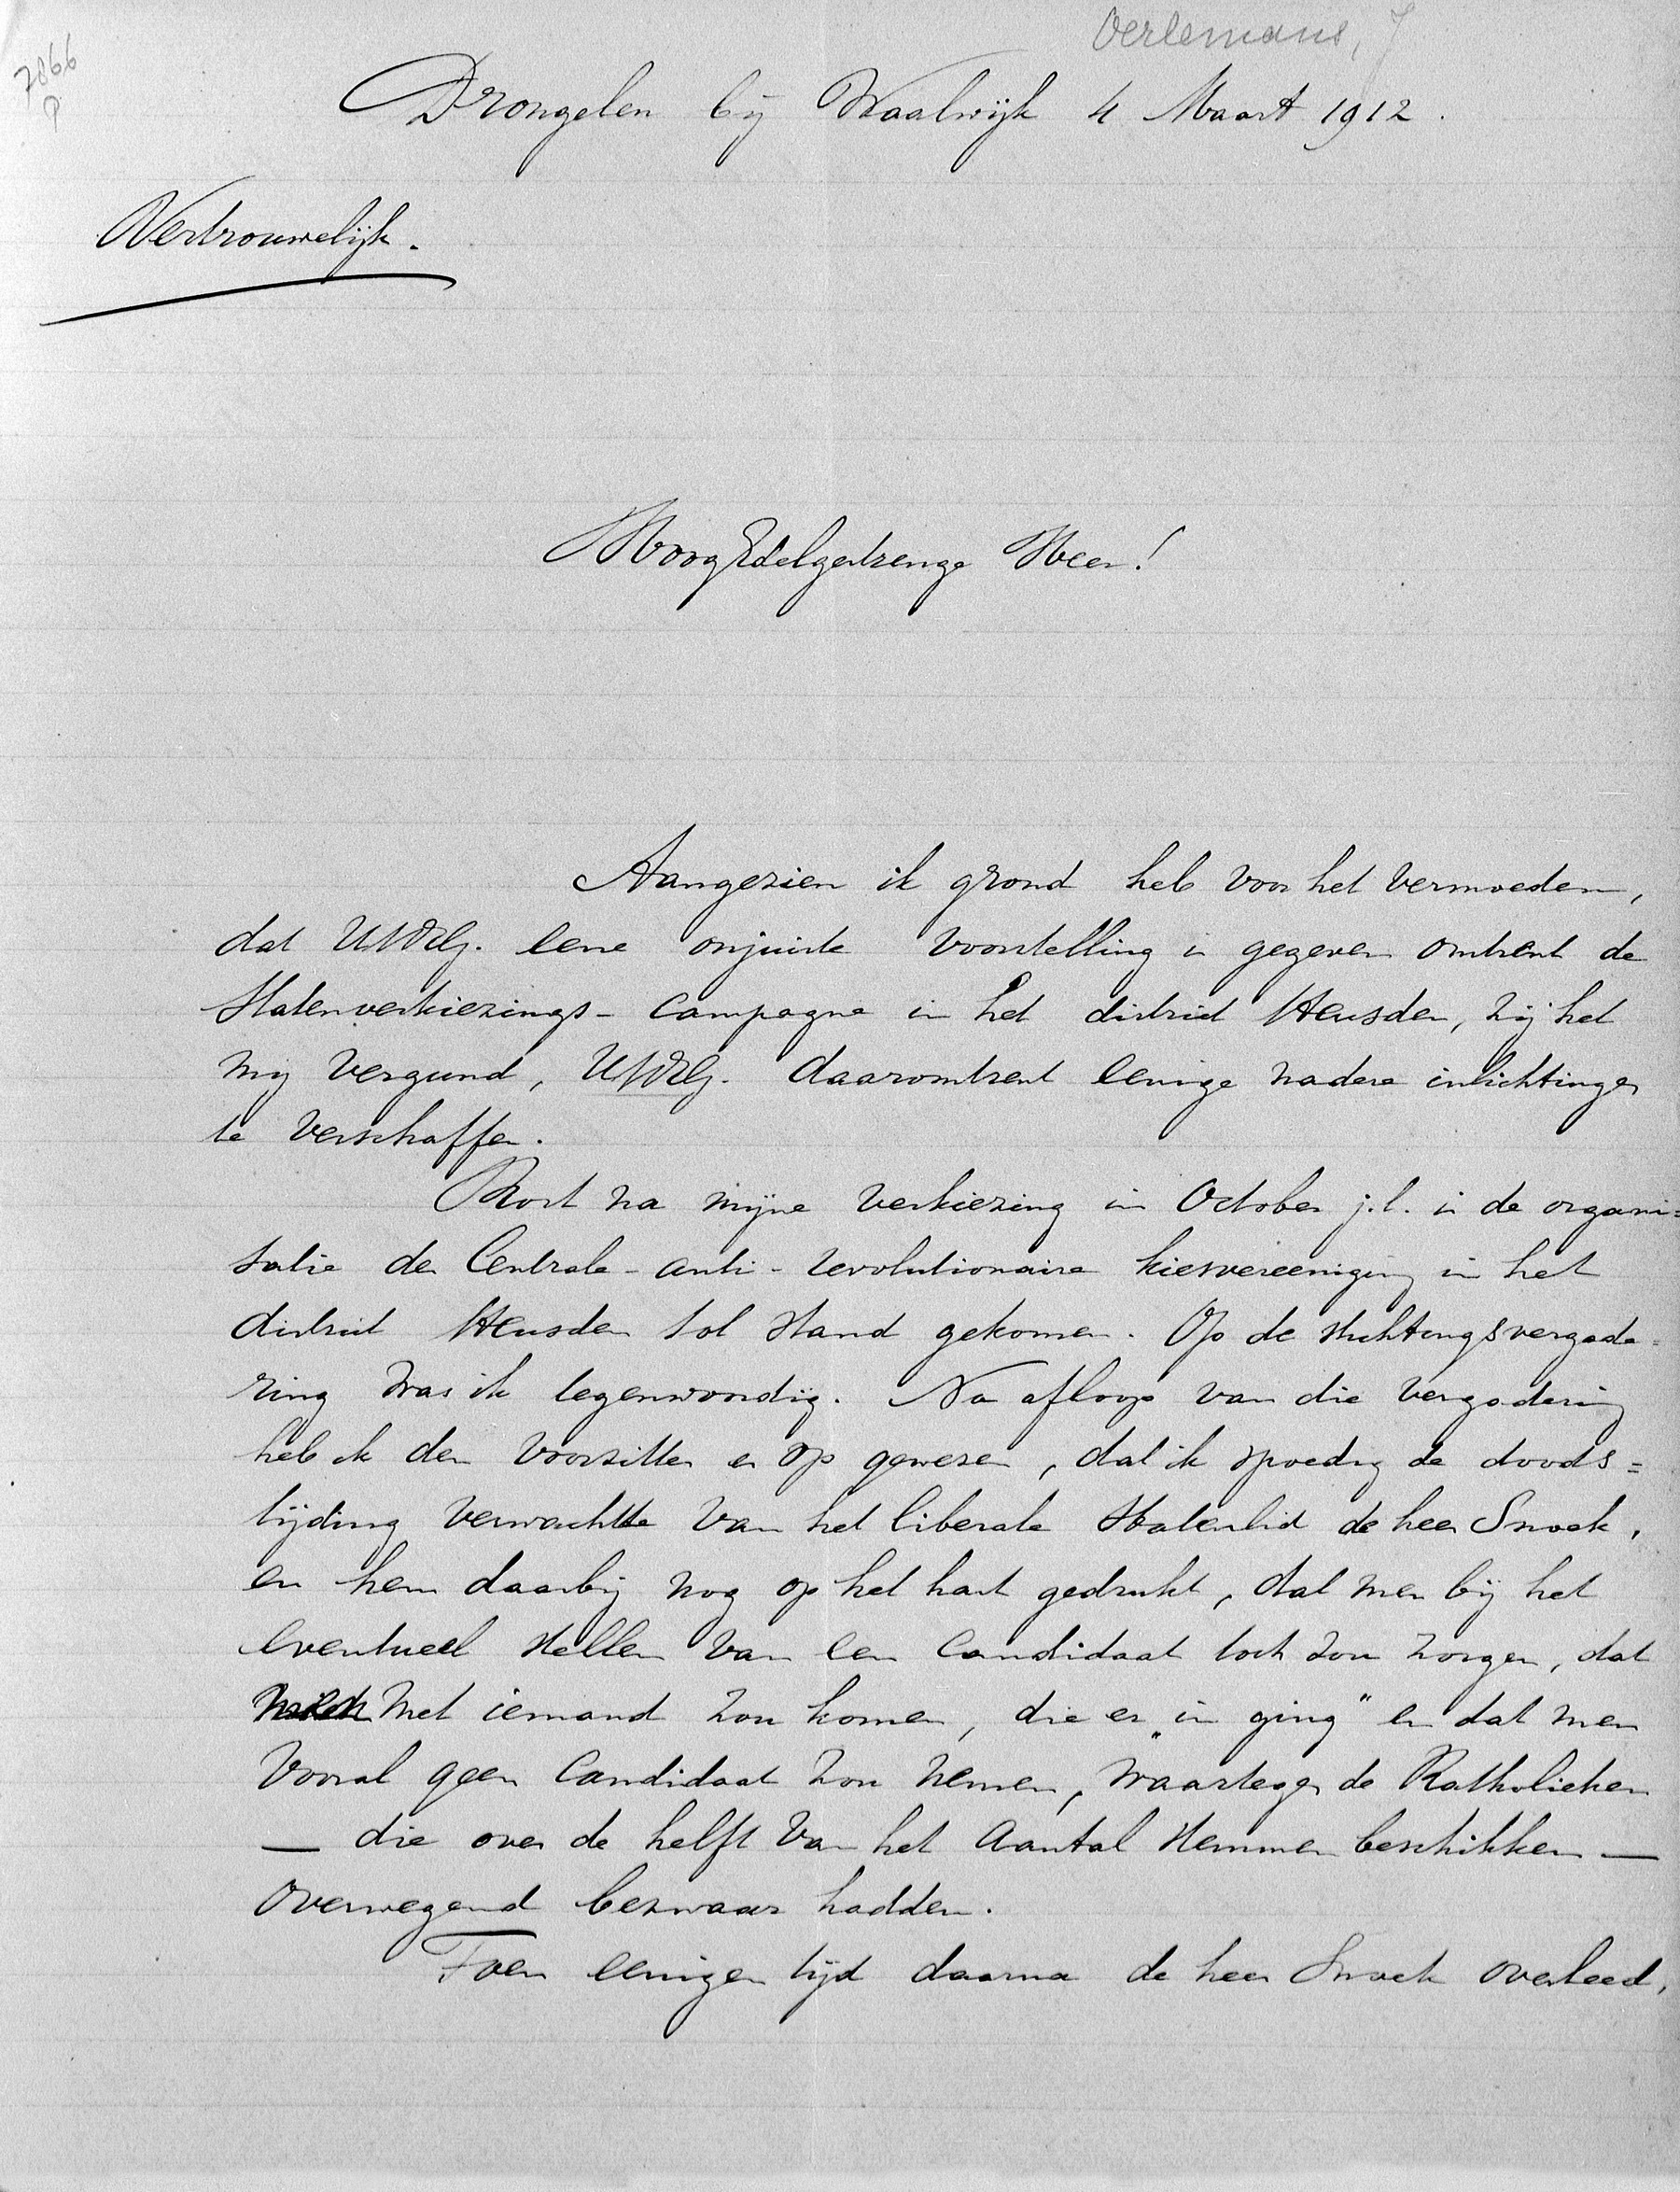 Oerlemans, J
7866
P
Drongelen bij Waalwijk 4 Maart 1912.
Vertrouwelijk.
HoogEdelgestrenge Heer!
Aangezien ik grond heb voor het vermoeden,
dat UHEG. eene onjuiste voorstelling is gegeven omtrent de
Statenverkiezings-campagne in het district Heusden, zij het
mij vergund, UHEG. daaromtrent eenige nadere inlichtingen
te verschaffen.
Kort na mijne verkiezing in October j.l. is de organi=
satie der Centrale-anti-revolutionaire kiesvereeniging in het
district Heusden tot stand gekomen. Op de stichtingsvergade=
ring was ik tegenwoordig. Na afloop van die vergadering
heb ik den voorzitter er op gewezen, dat ik spoedig de doods=
tijding verwachtte van het liberale Statenlid de heer Snoek,
en hem daarbij nog op het hart gedrukt, dat men bij het
eventueel stellen van een candidaat toch zou zorgen, dat
men met iemand zou komen, die er „in ging" en dat men
vooral geen candidaat zou nemen, waartegen de Katholieken
— die over de helft van het aantal stemmen beschikken —
overwegend bezwaar hadden.
Toen eenigen tijd daarna de heer Snoek overleed,